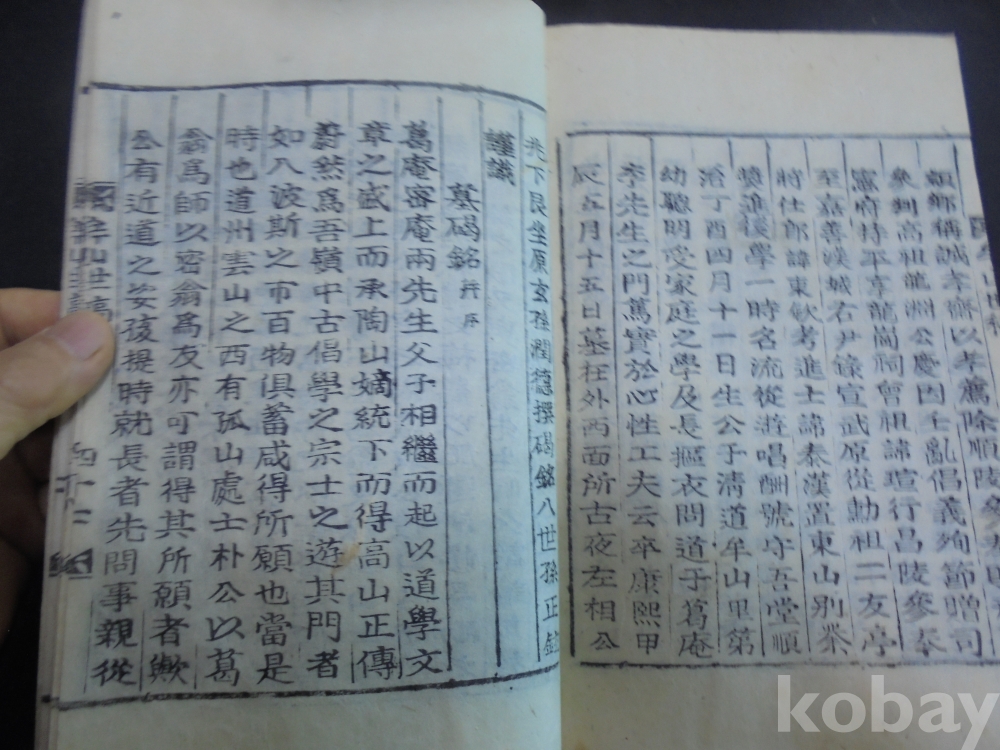 顯鄕稱誠孝齋以孝薦除順陵參奉
參判高祖龍淵公慶因壬亂倡義殉節贈司
憲府持平享龍崗祠曾祖諱瑄行昌陵參奉
至嘉善漢城右尹錄宣武原從勳祖二友亭
將仕郎諱東欽考進士諱泰漢置東山別業
奬進後學一時名流從遊唱酬號守吾堂順
治丁酉四月十一日生公于淸道牟山里第
幼聰明受家庭之學及長摳衣問道于葛庵
李先生之門篤實於心性工夫云卒康熙甲
辰五月十五日墓在外西面所古夜左相公
兆下艮坐原玄孫潤德撰碣銘八世孫正鉉
謹識
墓碣銘 幷序
葛庵密庵兩先生父子相繼而起以道學文
章之盛上而承陶山嫡統下而得高山正傳
蔚然爲吾嶺中古倡學之宗士之遊其門者
如入波斯之市百物俱蓄咸得所願也當是
時也道州雲山之西有孤山處士朴公以葛
翁爲師以密翁爲友亦可謂得其所願者歟
公有近道之姿孩提時就長者先問事親從
世稿
kobay